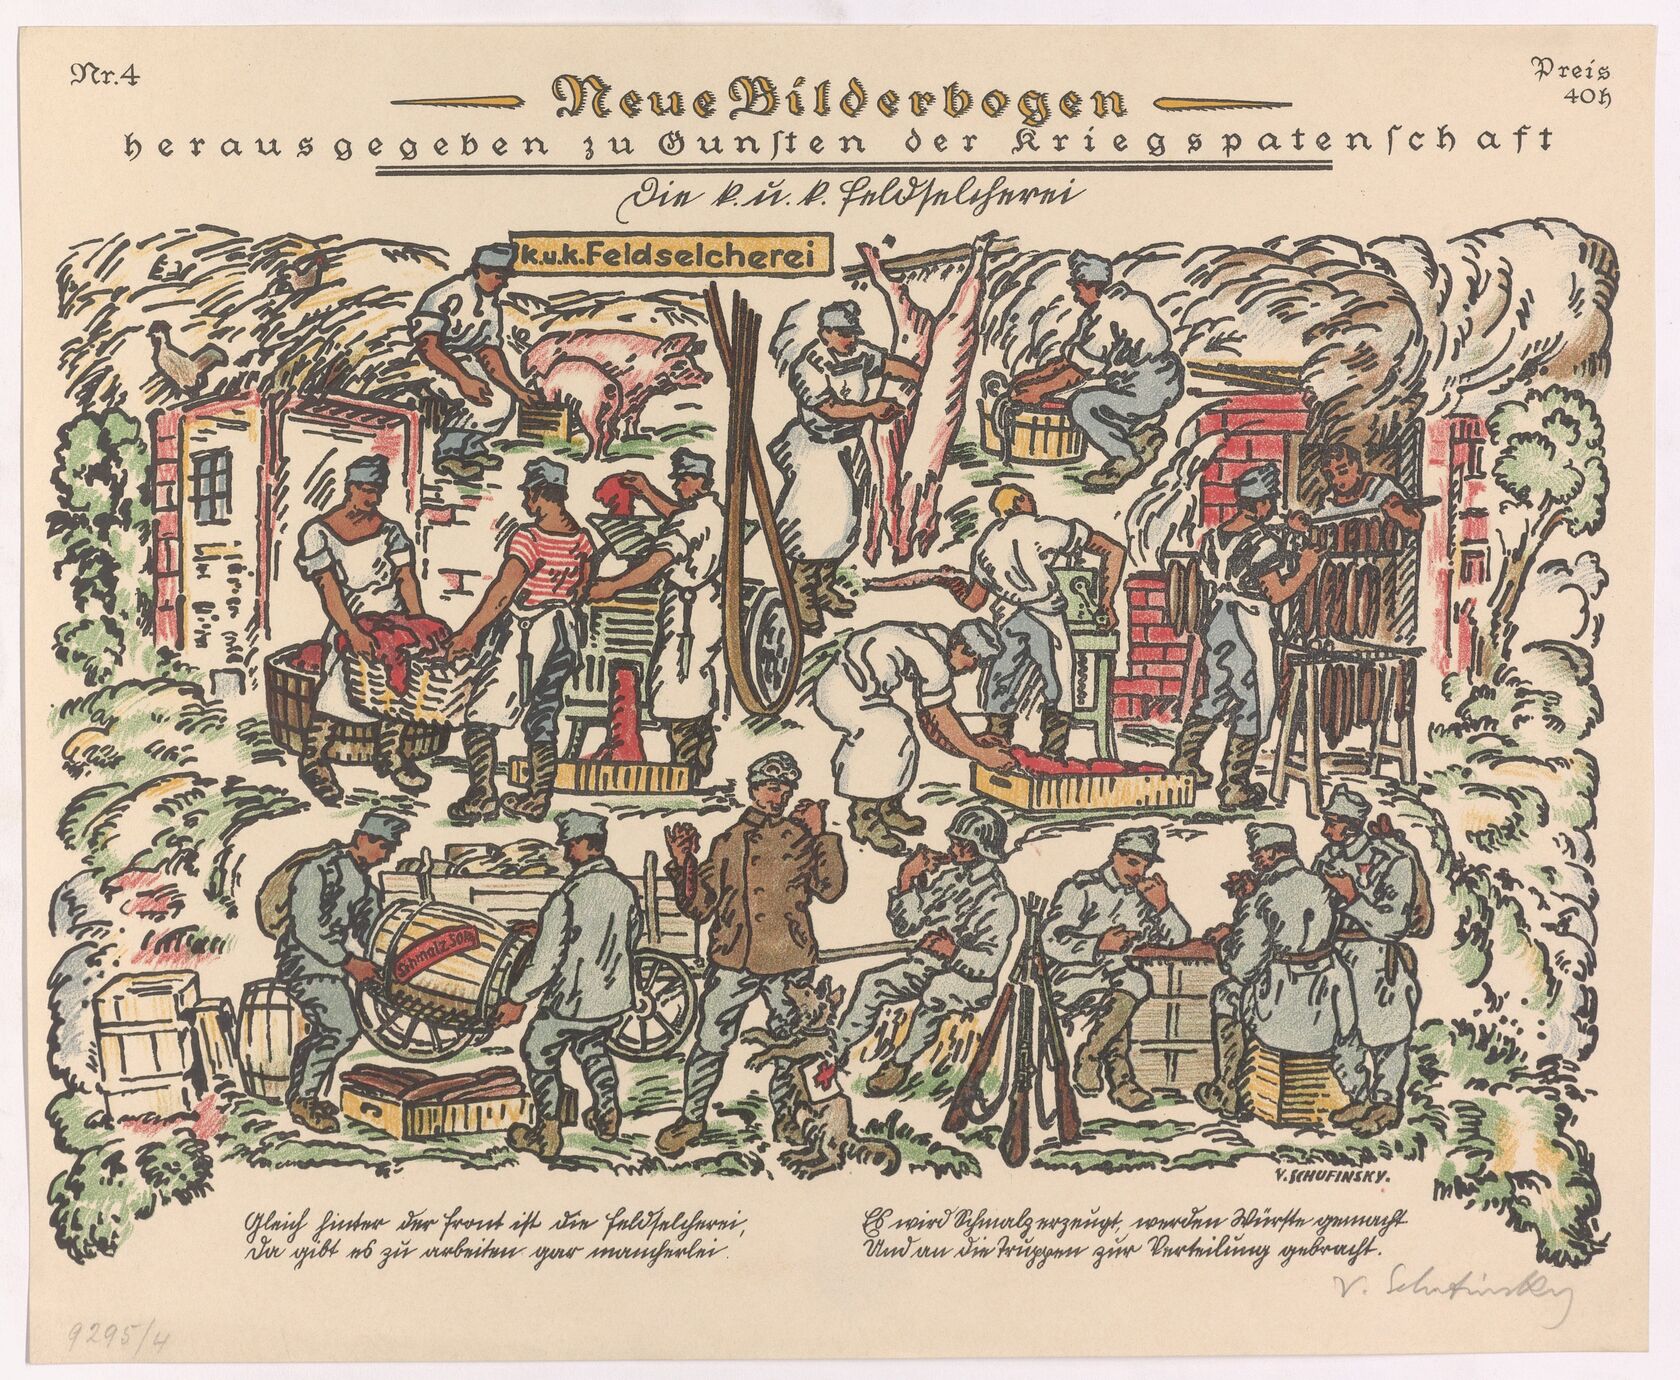 Nr. 4
Preis
40 h
Neue Bilderbogen
herausgegeben zu Gunſten der Kriegspatenſchaft
Die k. u. k. Feldſelcherei
k.u.k. Feldselcherei
Schmalz 50 K
V. SCHUFINSKY.
Gleich hinter der Front iſt die Feldſelcherei,
Da gibt es zu arbeiten gar mancherlei.
Es wird Schmalz erzeugt, werden Würſte gemacht
Und an die Truppen zur Verteilung gebracht.
V. Schufinsky
9295/4